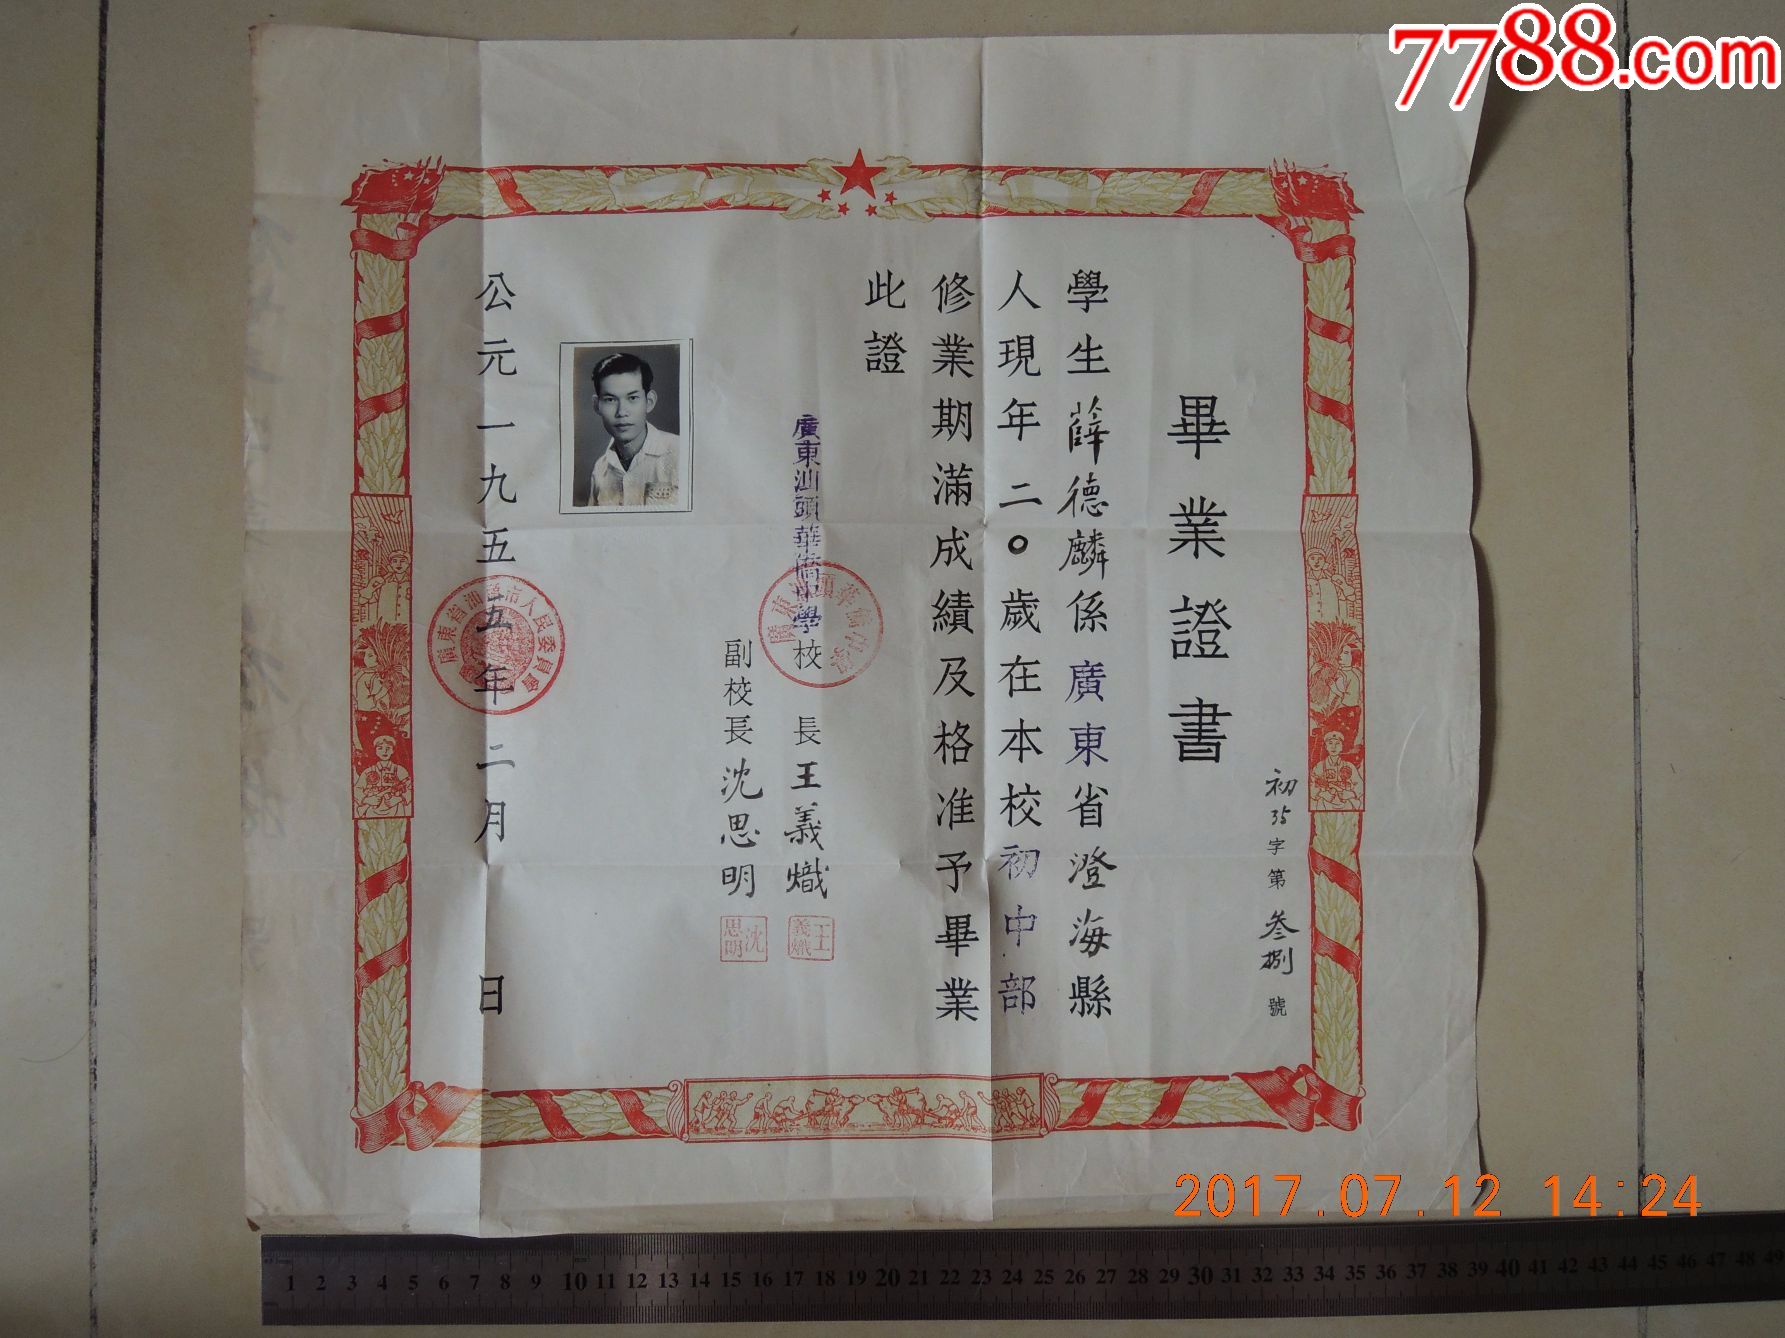 7788.com
畢業證書
初35字第叁捌號
學生薛德麟係廣東省澄海縣
人現年二〇歲在本校初中部
修業期滿成績及格准予畢業
此證
廣東汕頭華僑中學校長王義熾
王義熾
副校長沈思明
沈思明
公元一九五五年二月日
廣東省汕頭市人民委員會
2017.07.12 14:24
1 2 3 4 5 6 7 8 9 10 11 12 13 14 15 16 17 18 19 20 21 22 23 24 25 26 27 28 29 30 31 32 33 34 35 36 37 38 39 40 41 42 43 44 45 46 47 48 49